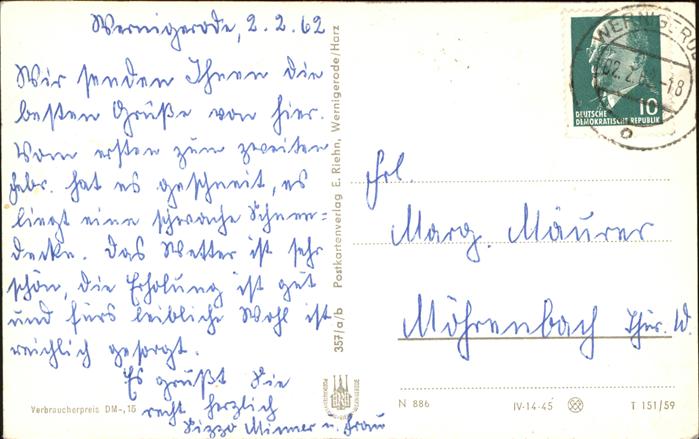 Wernigerode, 2.2.62
Wir senden Ihnen die
besten Grüße von hier.
Vom ersten zum zweiten
Febr. hat es geschneit, es
liegt eine schwache Schnee-
decke. Das Wetter ist sehr
schön, die Erholung ist gut
und fürs leibliche Wohl ist
reichlich gesorgt.
Es grüßt Sie
recht herzlich
u. Frau
Verbraucherpreis DM -,15
357/a/b Postkartenverlag E. Riehn, Wernigerode/Harz
WERNIGERODE
02.2.6 -18
10
DEUTSCHE
DEMOKRATISCHE REPUBLIK
Frl.
Marg. Mäurer
Möhrenbach Thür. W.
N 886 IV-14-45 T 151/59